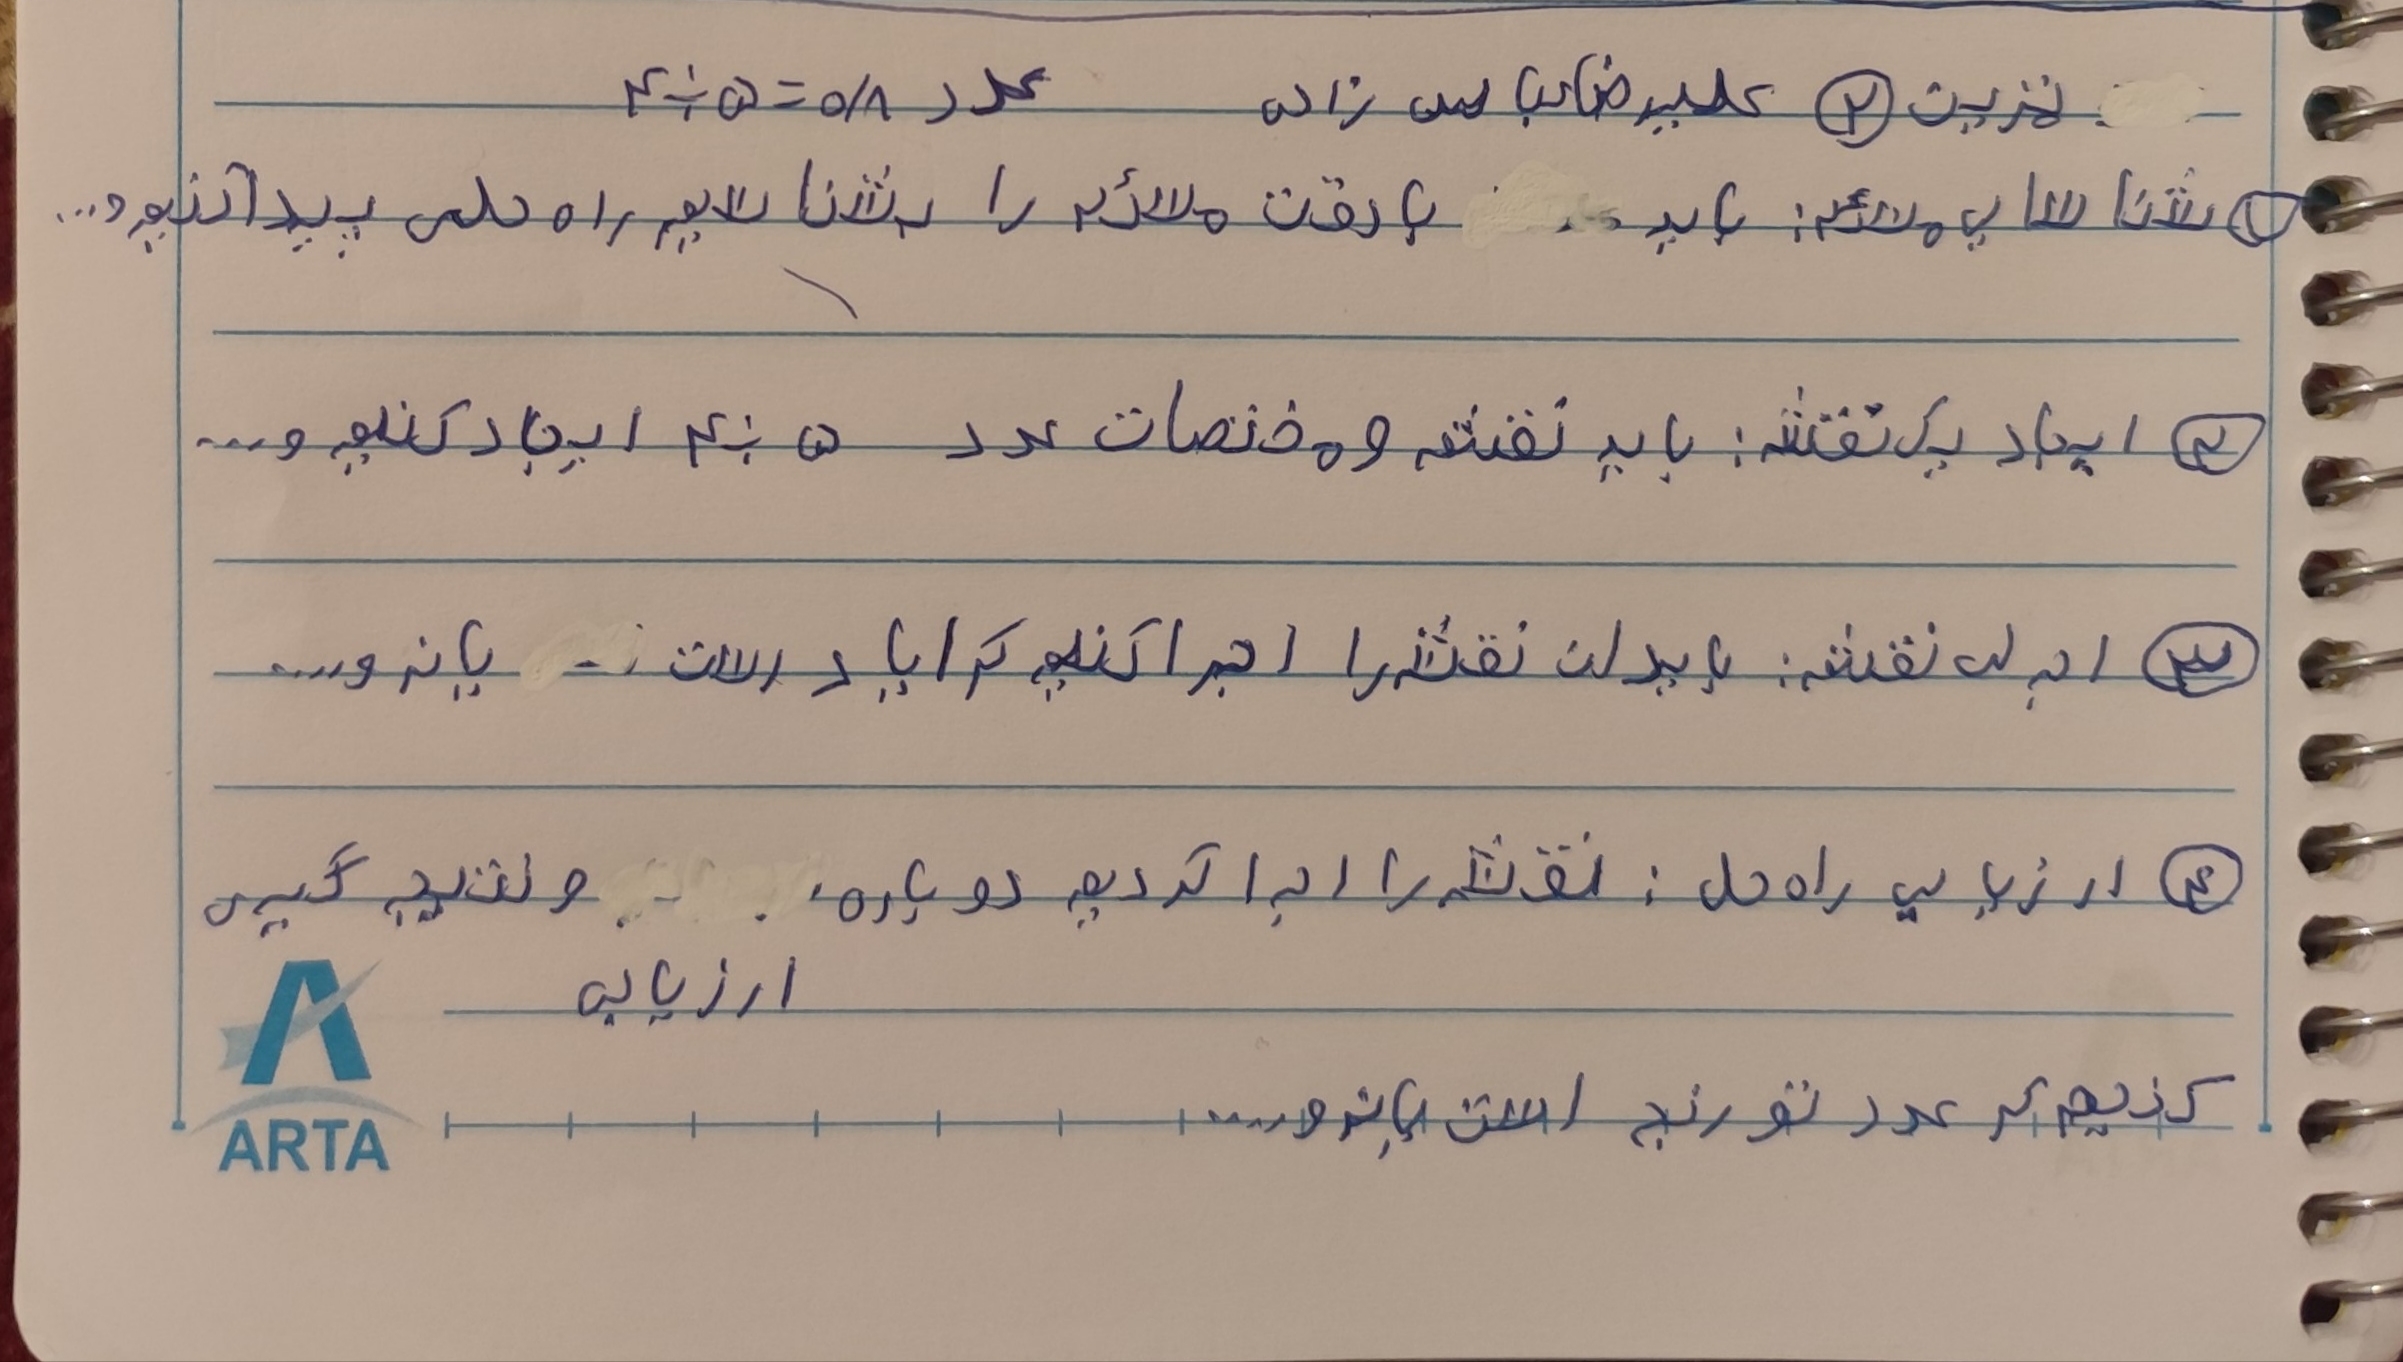 تمرین ② علیرضا عباس زاده عدد ۴÷۵=۰/۸
① شناسایی مسئله: باید با دقت مسئله را بشناسیم راه حلی پیدا کنیم و...
② ایجاد یک نقشه: باید نقشه و مختصات عدد ۵ ÷ ۴ ایجاد کنیم و...
③ اجرای نقشه: باید این نقشه را اجرا کنیم که آیا درست یا نه و...
④ ارزیابی راه حل: نقشه را اجرا کردیم دوباره و نتیجه گیری
ارزیابی
کنیم که عدد تو رنج است یا نه و...
ARTA